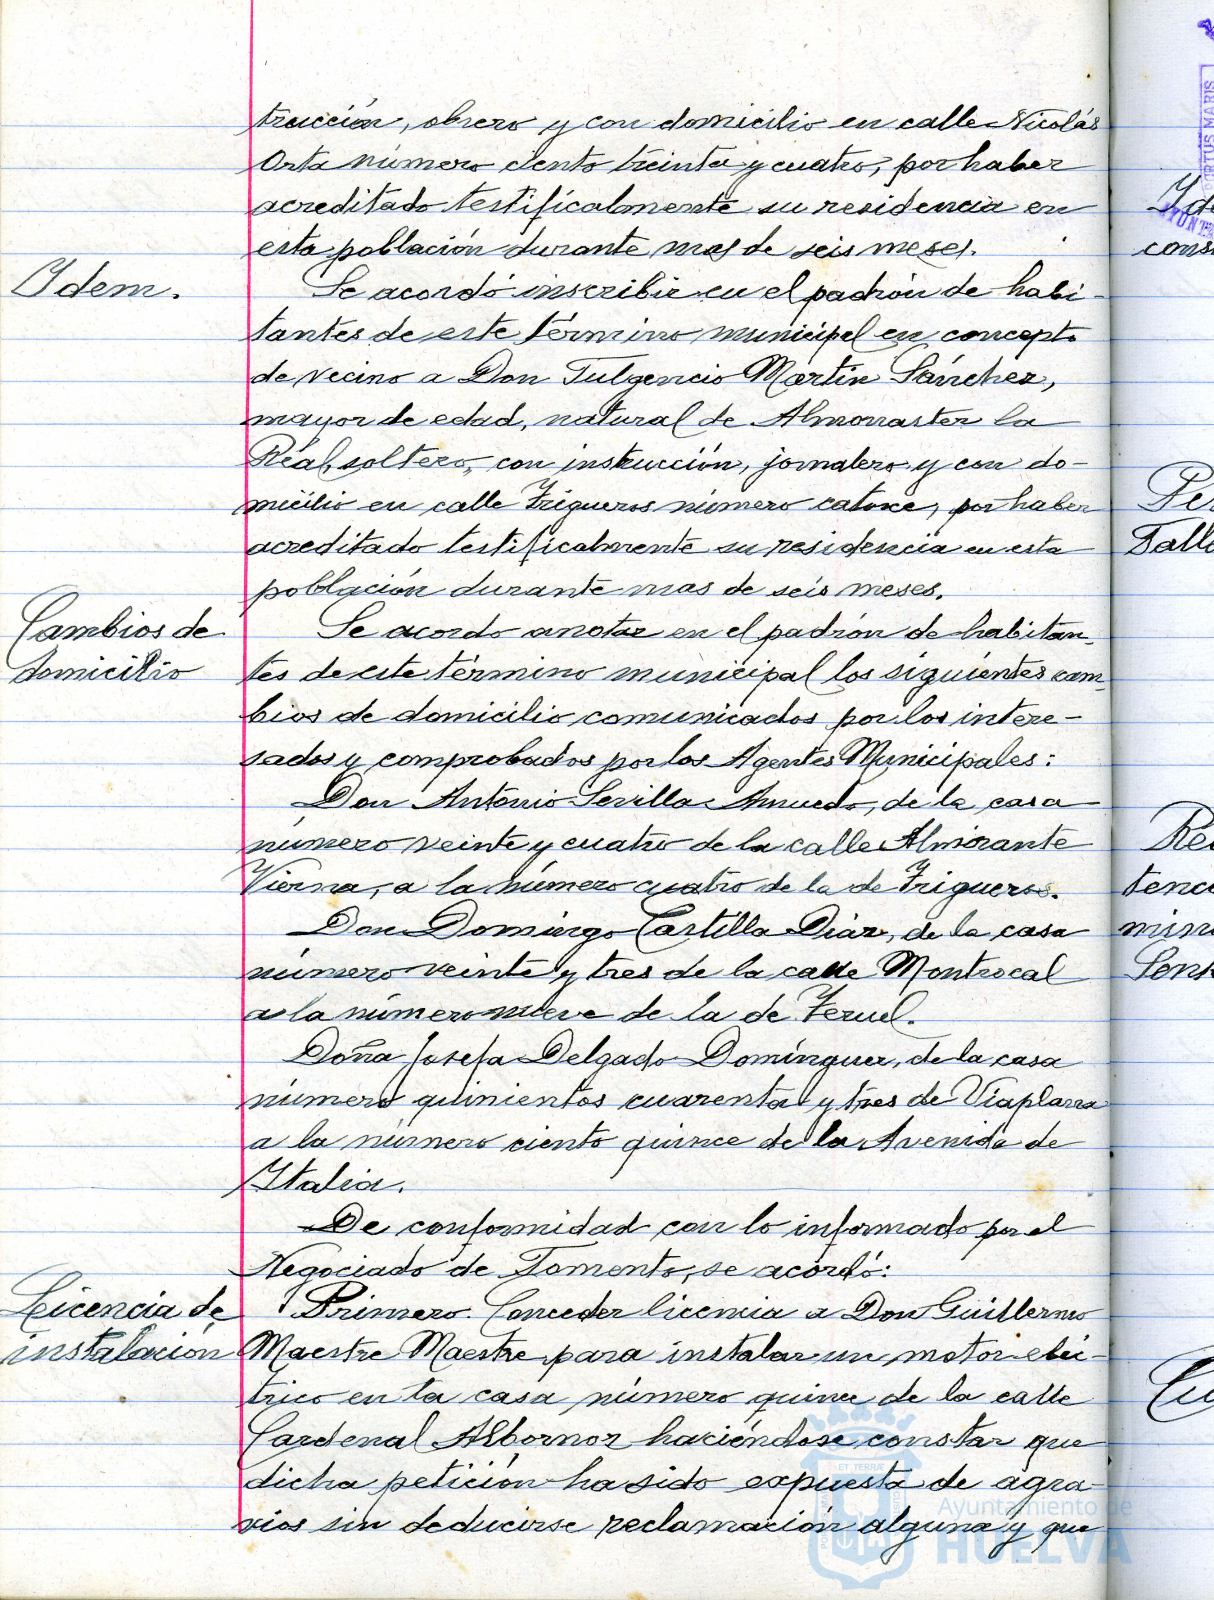 trucción, obrero y con domicilio en calle Nicolás
Orta número ciento treinta y cuatro, por haber
acreditado testificalmente su residencia en
esta población durante mas de seis meses.
Idem.
Se acordó inscribir en el padrón de habi-
tantes de este término municipal en concepto
de vecino a Don Fulgencio Martín Sánchez,
mayor de edad, natural de Almonaster la
Real, soltero, con instrucción, jornalero y con do-
micilio en calle Trigueros número catorce, por haber
acreditado testificalmente su residencia en esta
población durante mas de seis meses.
Cambios de
domicilio
Se acordo anotar en el padrón de habitan-
tes de este término municipal los siguientes cam-
bios de domicilio comunicados por los intere-
sados y comprobados por los Agentes Municipales:
Don Antonio Sevilla Amuedo, de la casa
número veinte y cuatro de la calle Almirante
Vierna, a la número cuatro de la de Trigueros.
Don Domingo Castilla Díaz, de la casa
número veinte y tres de la calle Montrocal
a la número nueve de la de Teruel.
Doña Josefa Delgado Domínguez, de la casa
número quinientos cuarenta y tres de Viaplana
a la número ciento quince de la Avenida de
Italia.
De conformidad con lo informado por el
Negociado de Fomento, se acordó:
Licencia de
instalación
Primero. Conceder licencia a Don Guillermo
Maestre Maestre para instalar un motor eléc-
trico en la casa número quince de la calle
Cardenal Albornoz haciéndose constar que
dicha petición ha sido expuesta de agra-
vios sin deducirse reclamación alguna y que
Ayuntamiento de
HUELVA